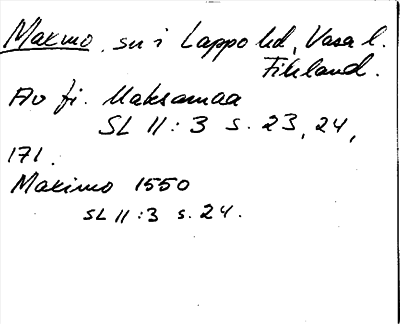 Maxmo, sn i Lappo hd, Vasa l.
Finland.
Av fi. Maksamaa
SL II:3 s. 23, 24,
171.
Maximo 1550
SL II:3 s. 24.